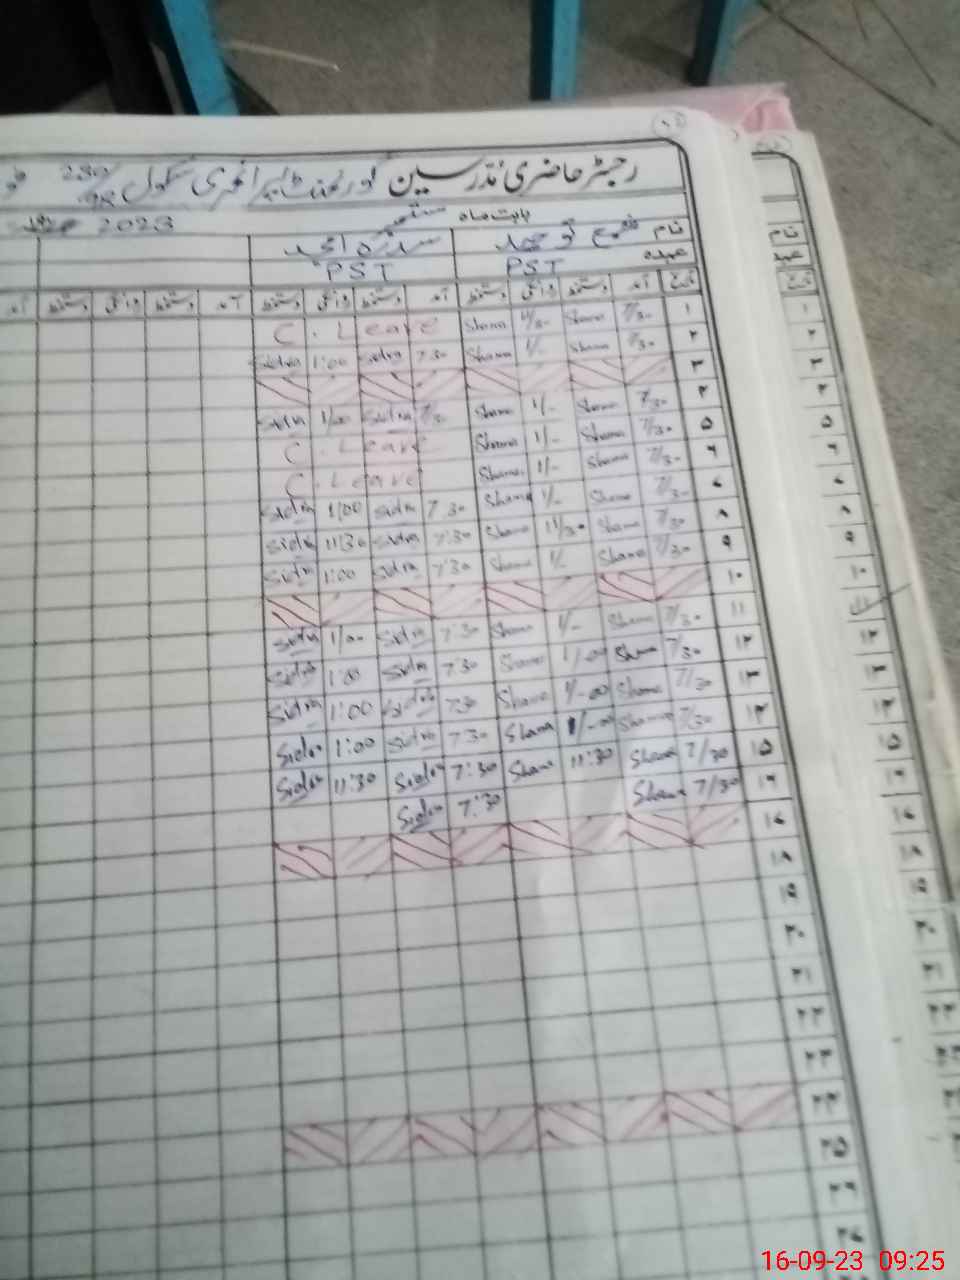 رجسٹر حاضری مدرسین گورنمنٹ پرائمری سکول
بابت ماہ ستمبر 2023
نام شمع توحید سدرہ امجد
عہدہ PST PST
تاریخ آمد دستخط روانگی دستخط آمد دستخط روانگی دستخط آمد دستخط روانگی دستخط آمد
۱ 7/30 Shama 11/30 Shama C. Leave
۲ 7/30 Shama 1/- Shama 7:30 Sidra 1:00 Sidra
۳
۴ 7/30 Shama 1/- Shama 7/30 Sidra 1/00 Sidra
۵ 7/30 Shama 1/- Shama C. Leave
۶ 7/30 Shama 1/- Shama C. Leave
۷ 7/30 Shama 1/- Shama 7:30 Sidra 1/00 Sidra
۸ 7/30 Shama 11/30 Shama 7:30 Sidra 11:30 Sidra
۹ 7/30 Shama 1/- Shama 7:30 Sidra 1:00 Sidra
۱۰
۱۱ 7/30 Shama 1/- Shama 7:30 Sidra 1/00 Sidra
۱۲ 7/30 Shama 1/-00 Shama 7:30 Sidra 1:00 Sidra
۱۳ 7/30 Shama 1/-00 Shama 7:30 Sidra 1:00 Sidra
۱۴ 7/30 Shama 1/-00 Shama 7:30 Sidra 1:00 Sidra
۱۵ 7/30 Shama 11:30 Shama 7:30 Sidra 11:30 Sidra
۱۶ 7/30 Shama 7:30 Sidra
۱۷
۱۸
۱۹
۲۰
۲۱
۲۲
۲۳
۲۴
۲۵
۲۶
۲۷
16-09-23 09:25